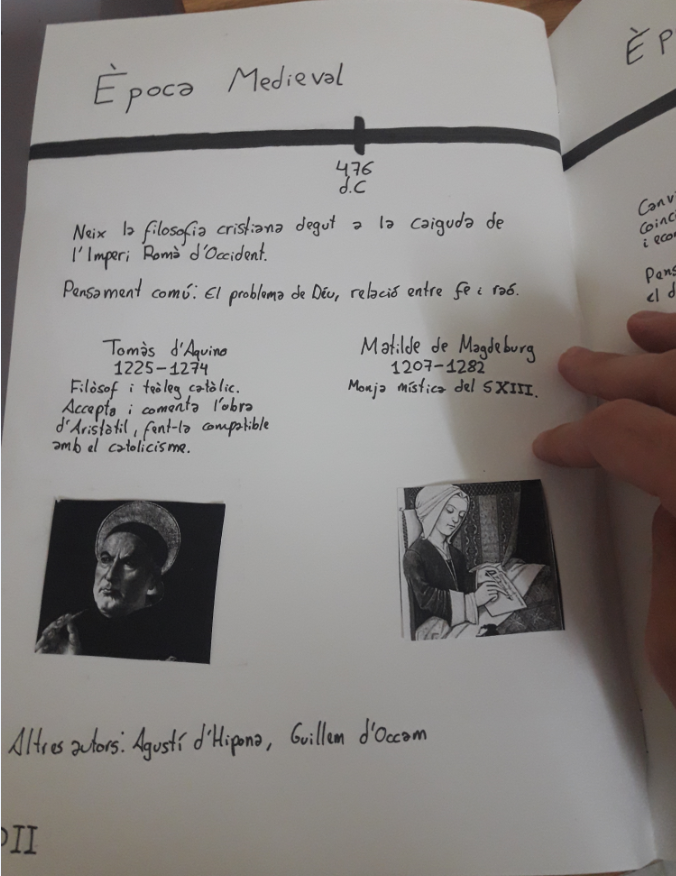 Època Medieval
476
d.C
Neix la filosofia cristiana degut a la caiguda de
l'Imperi Romà d'Occident.
Pensament comú: El problema de Déu, relació entre fe i raó.
Tomàs d'Aquino
1225-1274
Filòsof i teòleg catòlic.
Accepta i comenta l'obra
d'Aristòtil, fent-la compatible
amb el catolicisme.
Matilde de Magdeburg
1207-1282
Monja mística del SXIII.
Altres autors: Agustí d'Hipona, Guillem d'Occam
II
È P
Canvi
coinci
i eco
Pens
el d